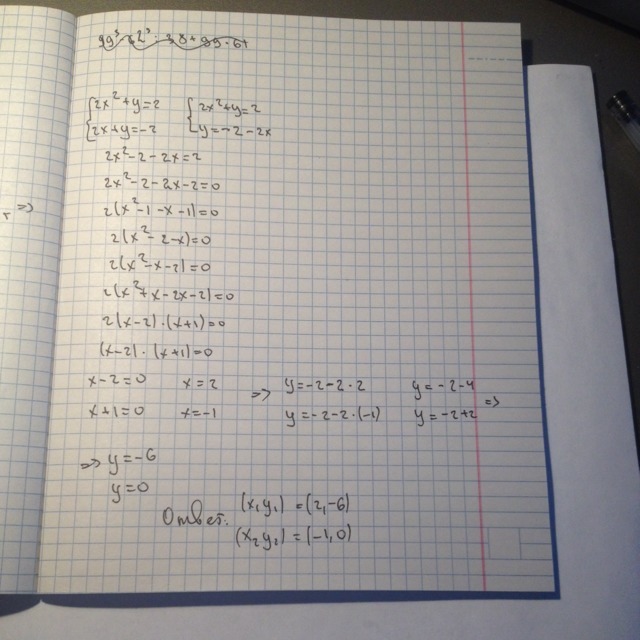 {2x²+y=2 {2x²+y=2
{2x+y=-2 {y=-2-2x
2x²-2-2x=2
2x²-2-2x-2=0
2(x²-1-x-1)=0
2(x²-2-x)=0
=>
2(x²-x-2)=0
2(x²+x-2x-2)=0
2(x-2)·(x+1)=0
(x-2)·(x+1)=0
x-2=0 x=2 => y=-2-2·2 y=-2-4
x+1=0 x=-1 y=-2-2·(-1) y=-2+2 =>
=> y=-6
y=0
Ответ: (x₁y₁) = (2,-6)
(x₂y₂) = (-1,0)